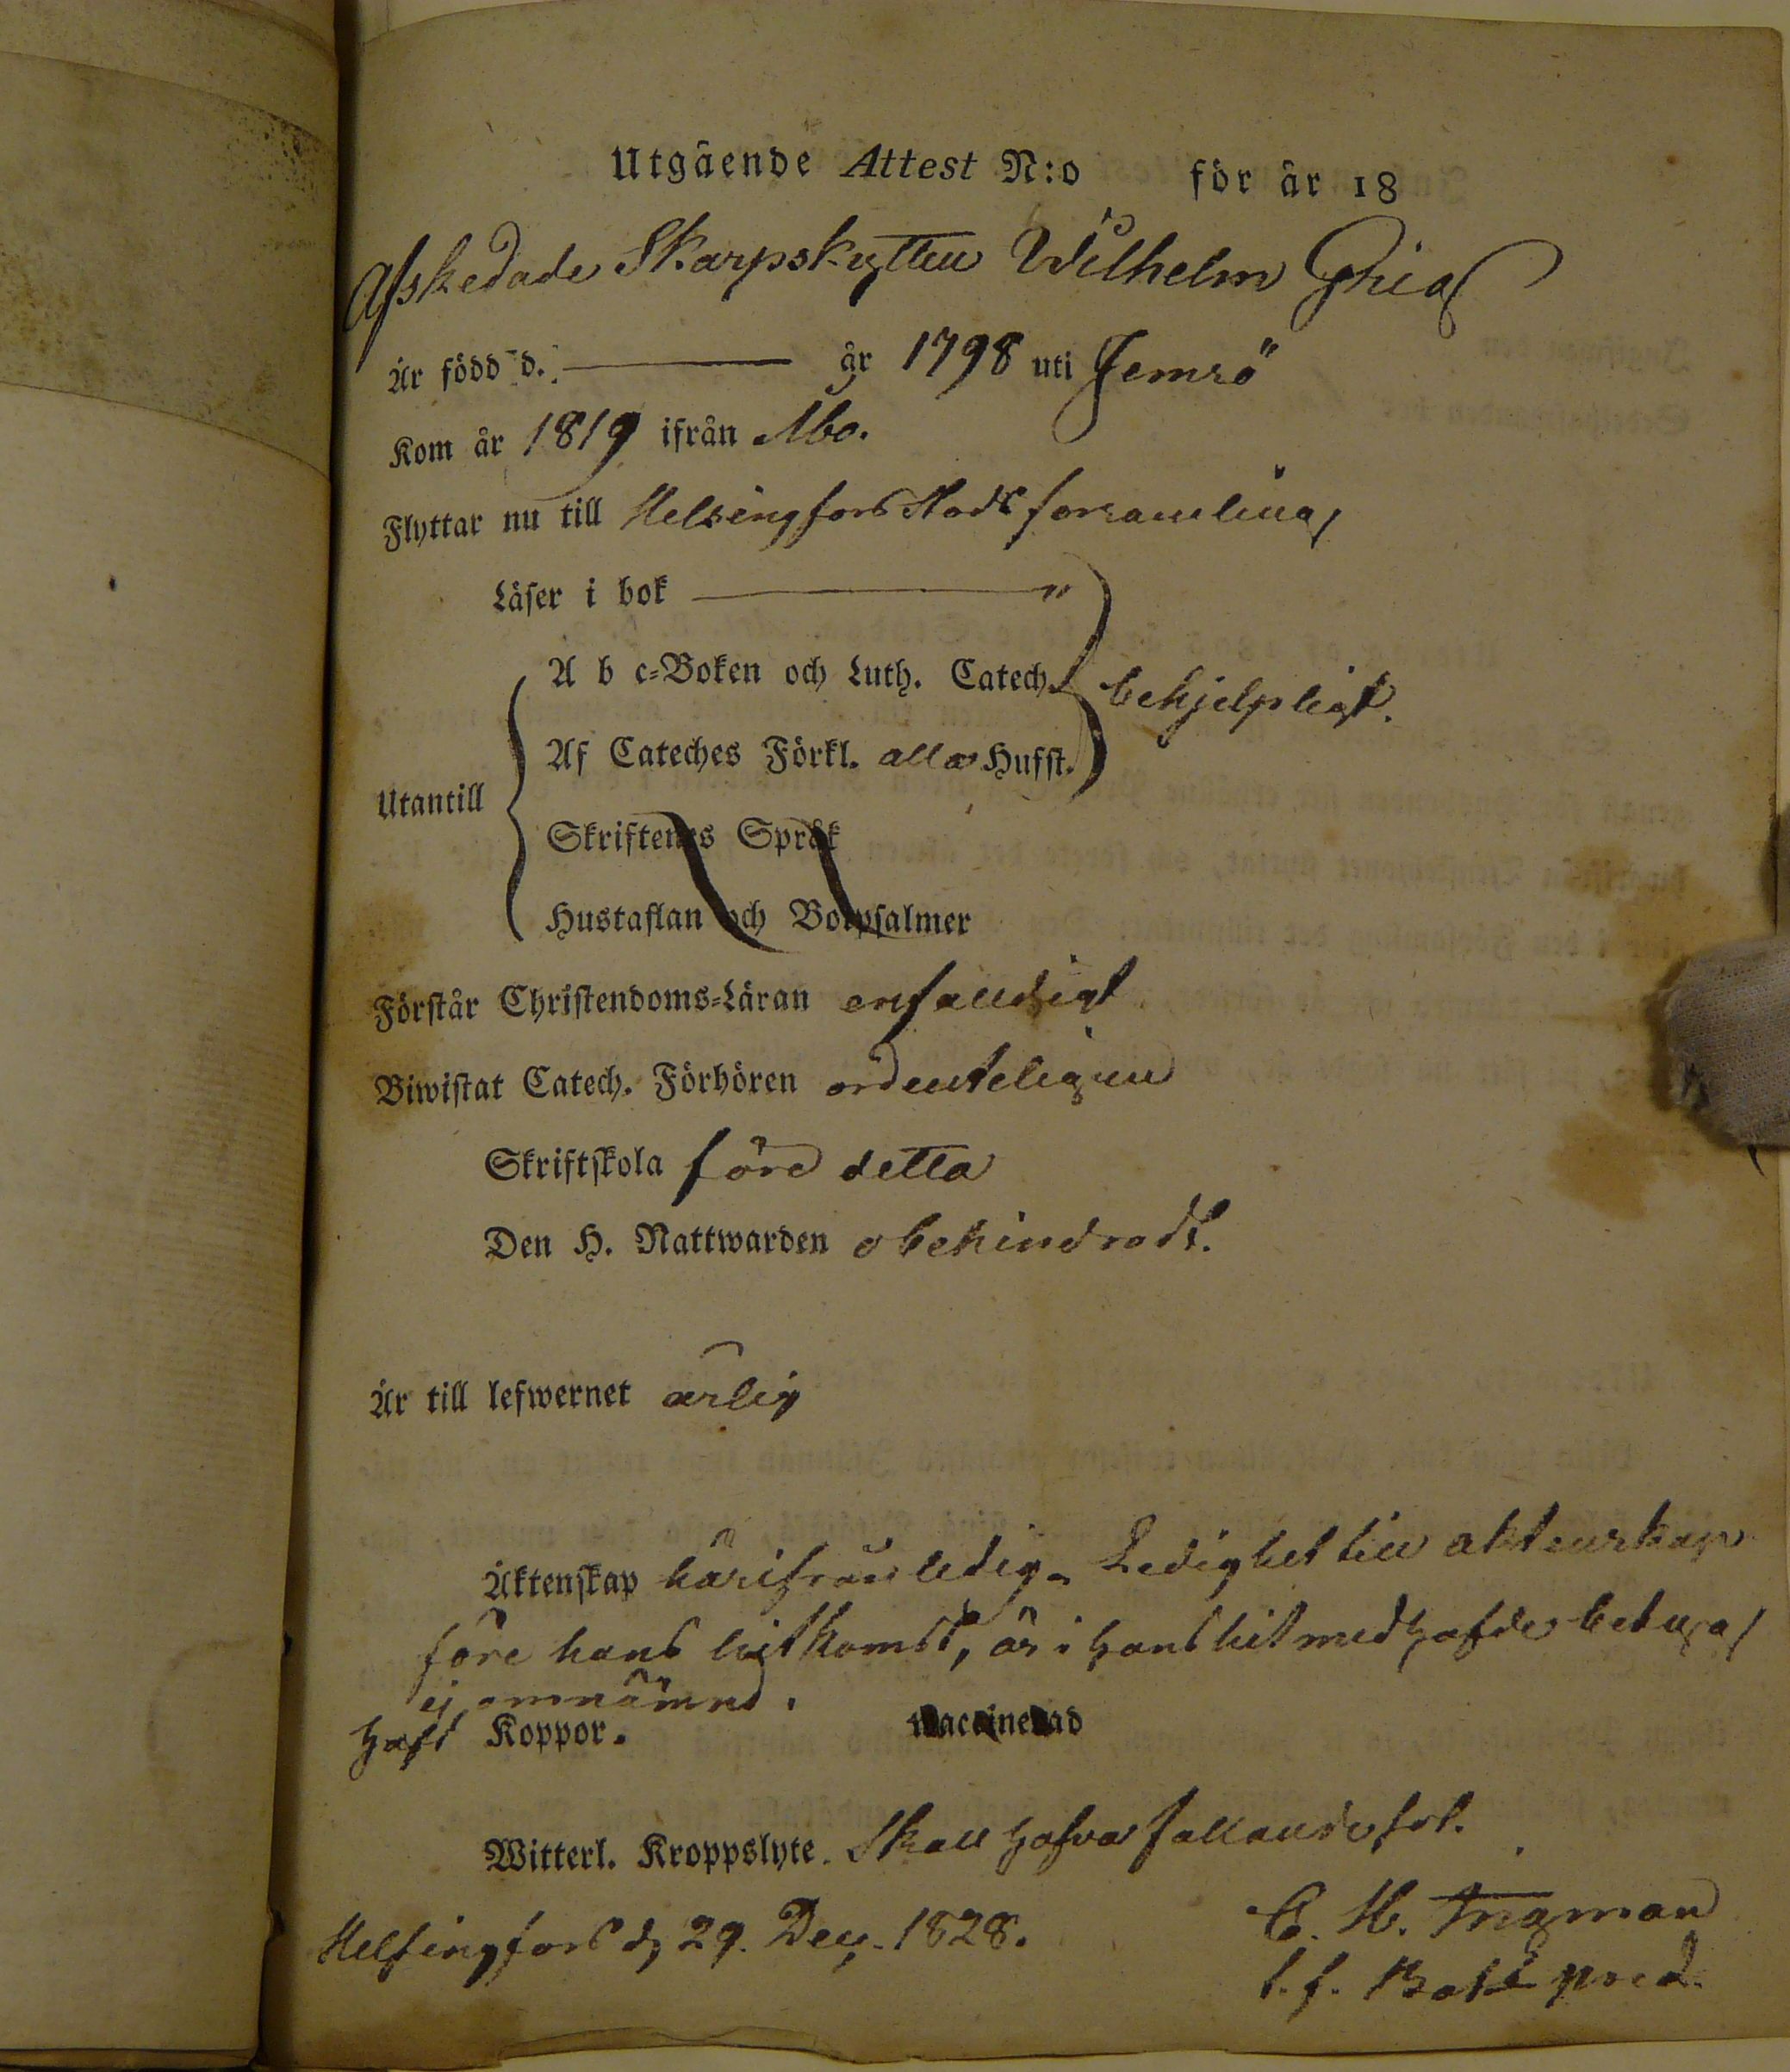 Utgående Attest N:o för år 18
Afskedade Skarpskytten Wilhelm
Är född d. år 1798 uti Jemsö
Kom år 1819 ifrån Åbo.
Flyttar nu till Helsingfors Stads församling
Läser i bok "
A b c=Boken och Luth. Catech. behjelpligt.
Af Cateches Förkl. alla Hufst.
Utantill
Skriftenes Språk
Hustaflan och Botpsalmer
Förstår Christendoms=Läran enfaldigt
Biwistat Catech. Förhören ordenteligen
Skriftskola före detta
Den H. Nattwarden obehindradt.
Är till lefwernet ärlig
Äktenskap härifrån ledig. Ledighet till äktenskap
före hans hitkomst, är i hans hitmedhafde betyg
ej omnämnd.
Haft Koppor. waccinerad
Witterl. Kroppslyte. Skall hafva fallandesot.
Helsingfors d. 29. Dec. 1828.
C. H. Ingman
t. f. Bat. pred.